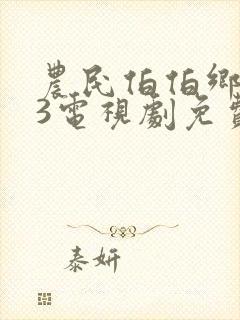 農民伯伯鄉
3電視劇免費
泰妍